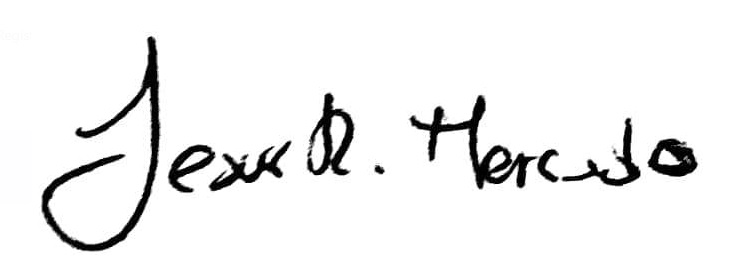 Jesus R. Mercado